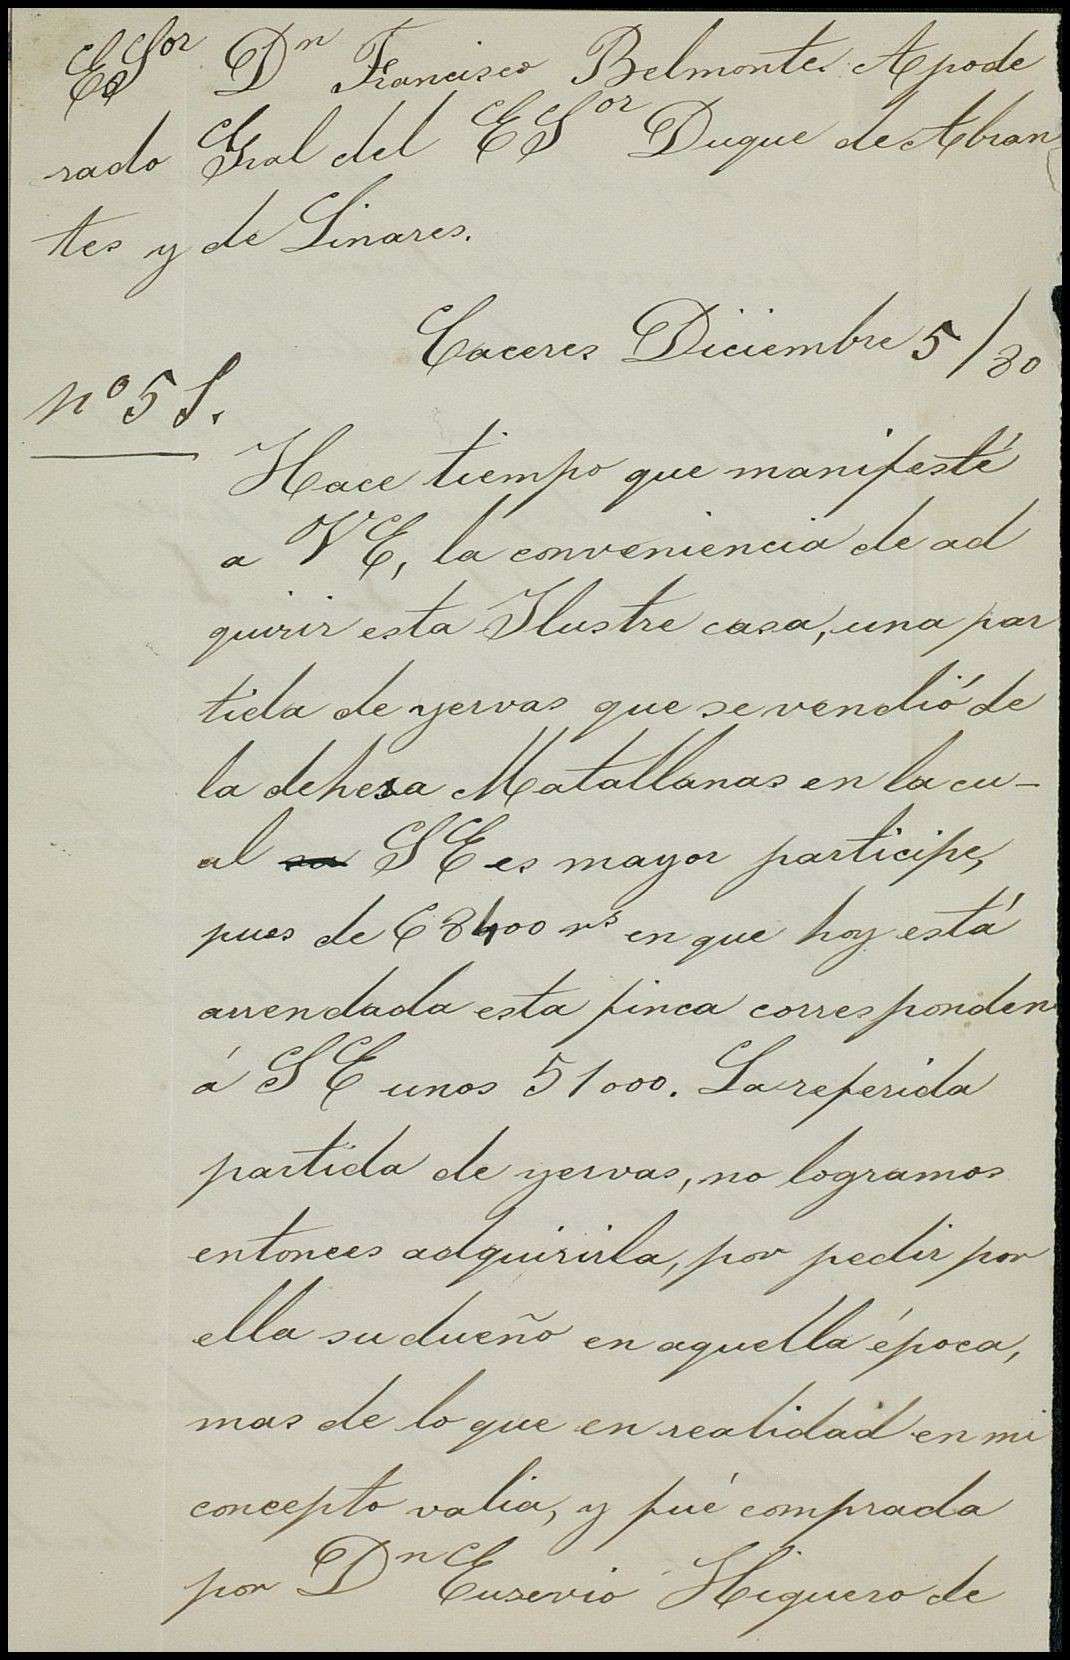 ESor Dn Francisco Belmonte. Apode
rado Gral del ESor Duque de Abran
tes y de Linares.
Caceres Diciembre 5/80
nº 5 S.
Hace tiempo que manifesté
a VE, la conveniencia de ad
quirir esta Ilustre casa, una par
tida de yervas que se vendió de
la dehesa Matallanas en la cu-
al SE es mayor participe,
pues de 68400 rs en que hoy está
arrendada esta finca corresponden
á SE unos 51000. La referida
partida de yervas, no logramos
entonces adquirirla, por pedir por
ella su dueño en aquella época,
mas de lo que en realidad en mi
concepto valia, y fué comprada
por Dn Eusevio Higuero de